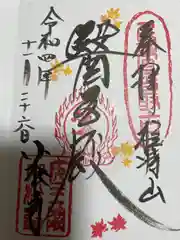 奉拝 檀特山
醫王殿
令和四年
十一月二十六日
小松寺